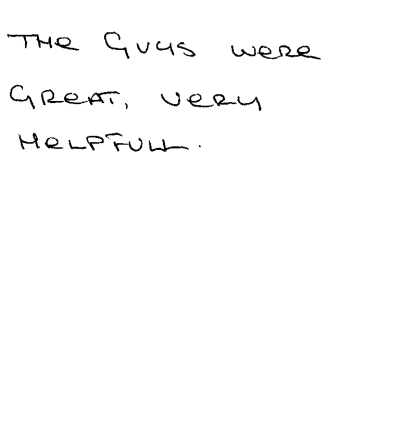 THE GUYS WERE
GREAT, VERY
HELPFULL.